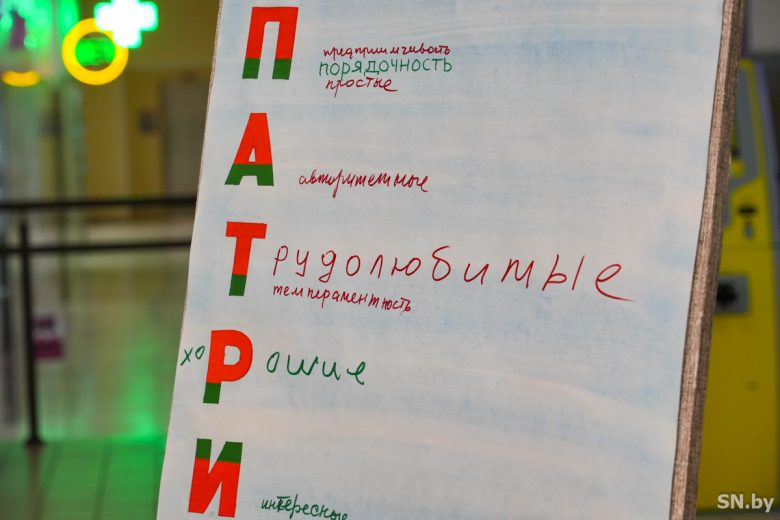 П
предприимчивость
порядочность
простые
А
авторитетные
Трудолюбимые
темпераментность
хорошие
И
интересные
SN.by